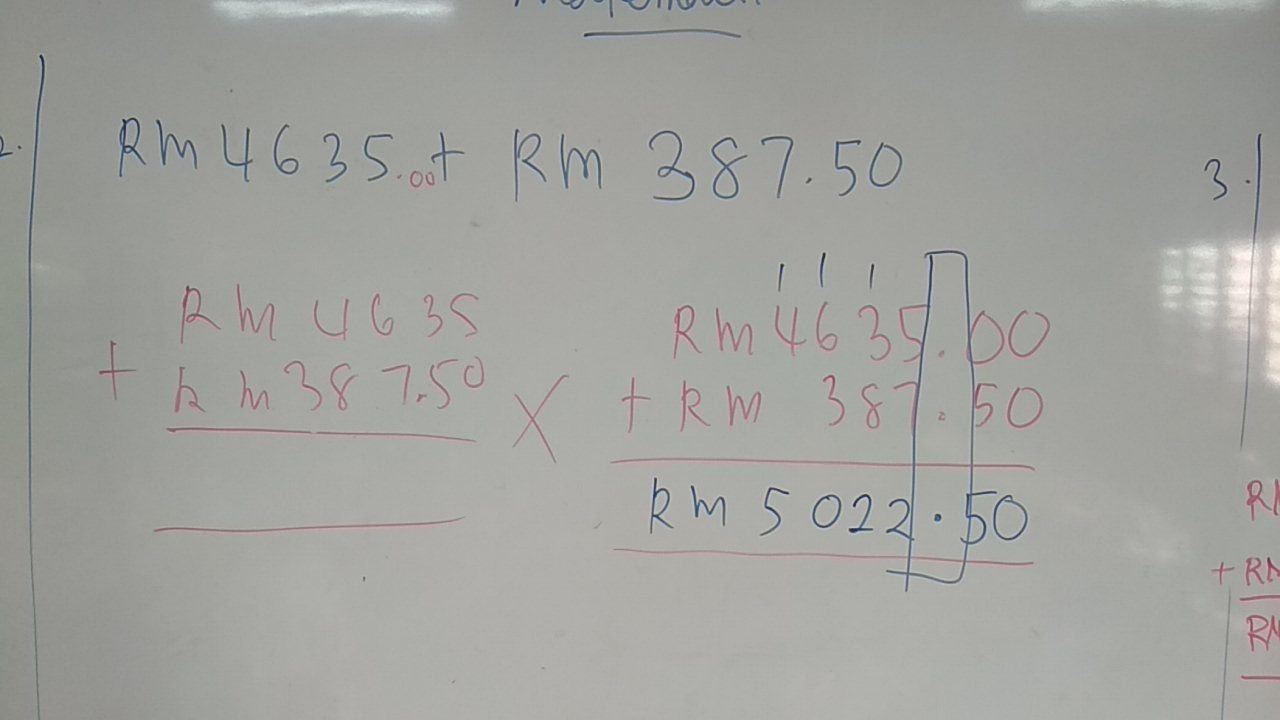 2.
RM 4635.00 + RM 387.50
RM 4635
+ RM 387.50
X
1 1 1
RM 4635.00
+ RM 387.50
RM 5022.50
3.
+